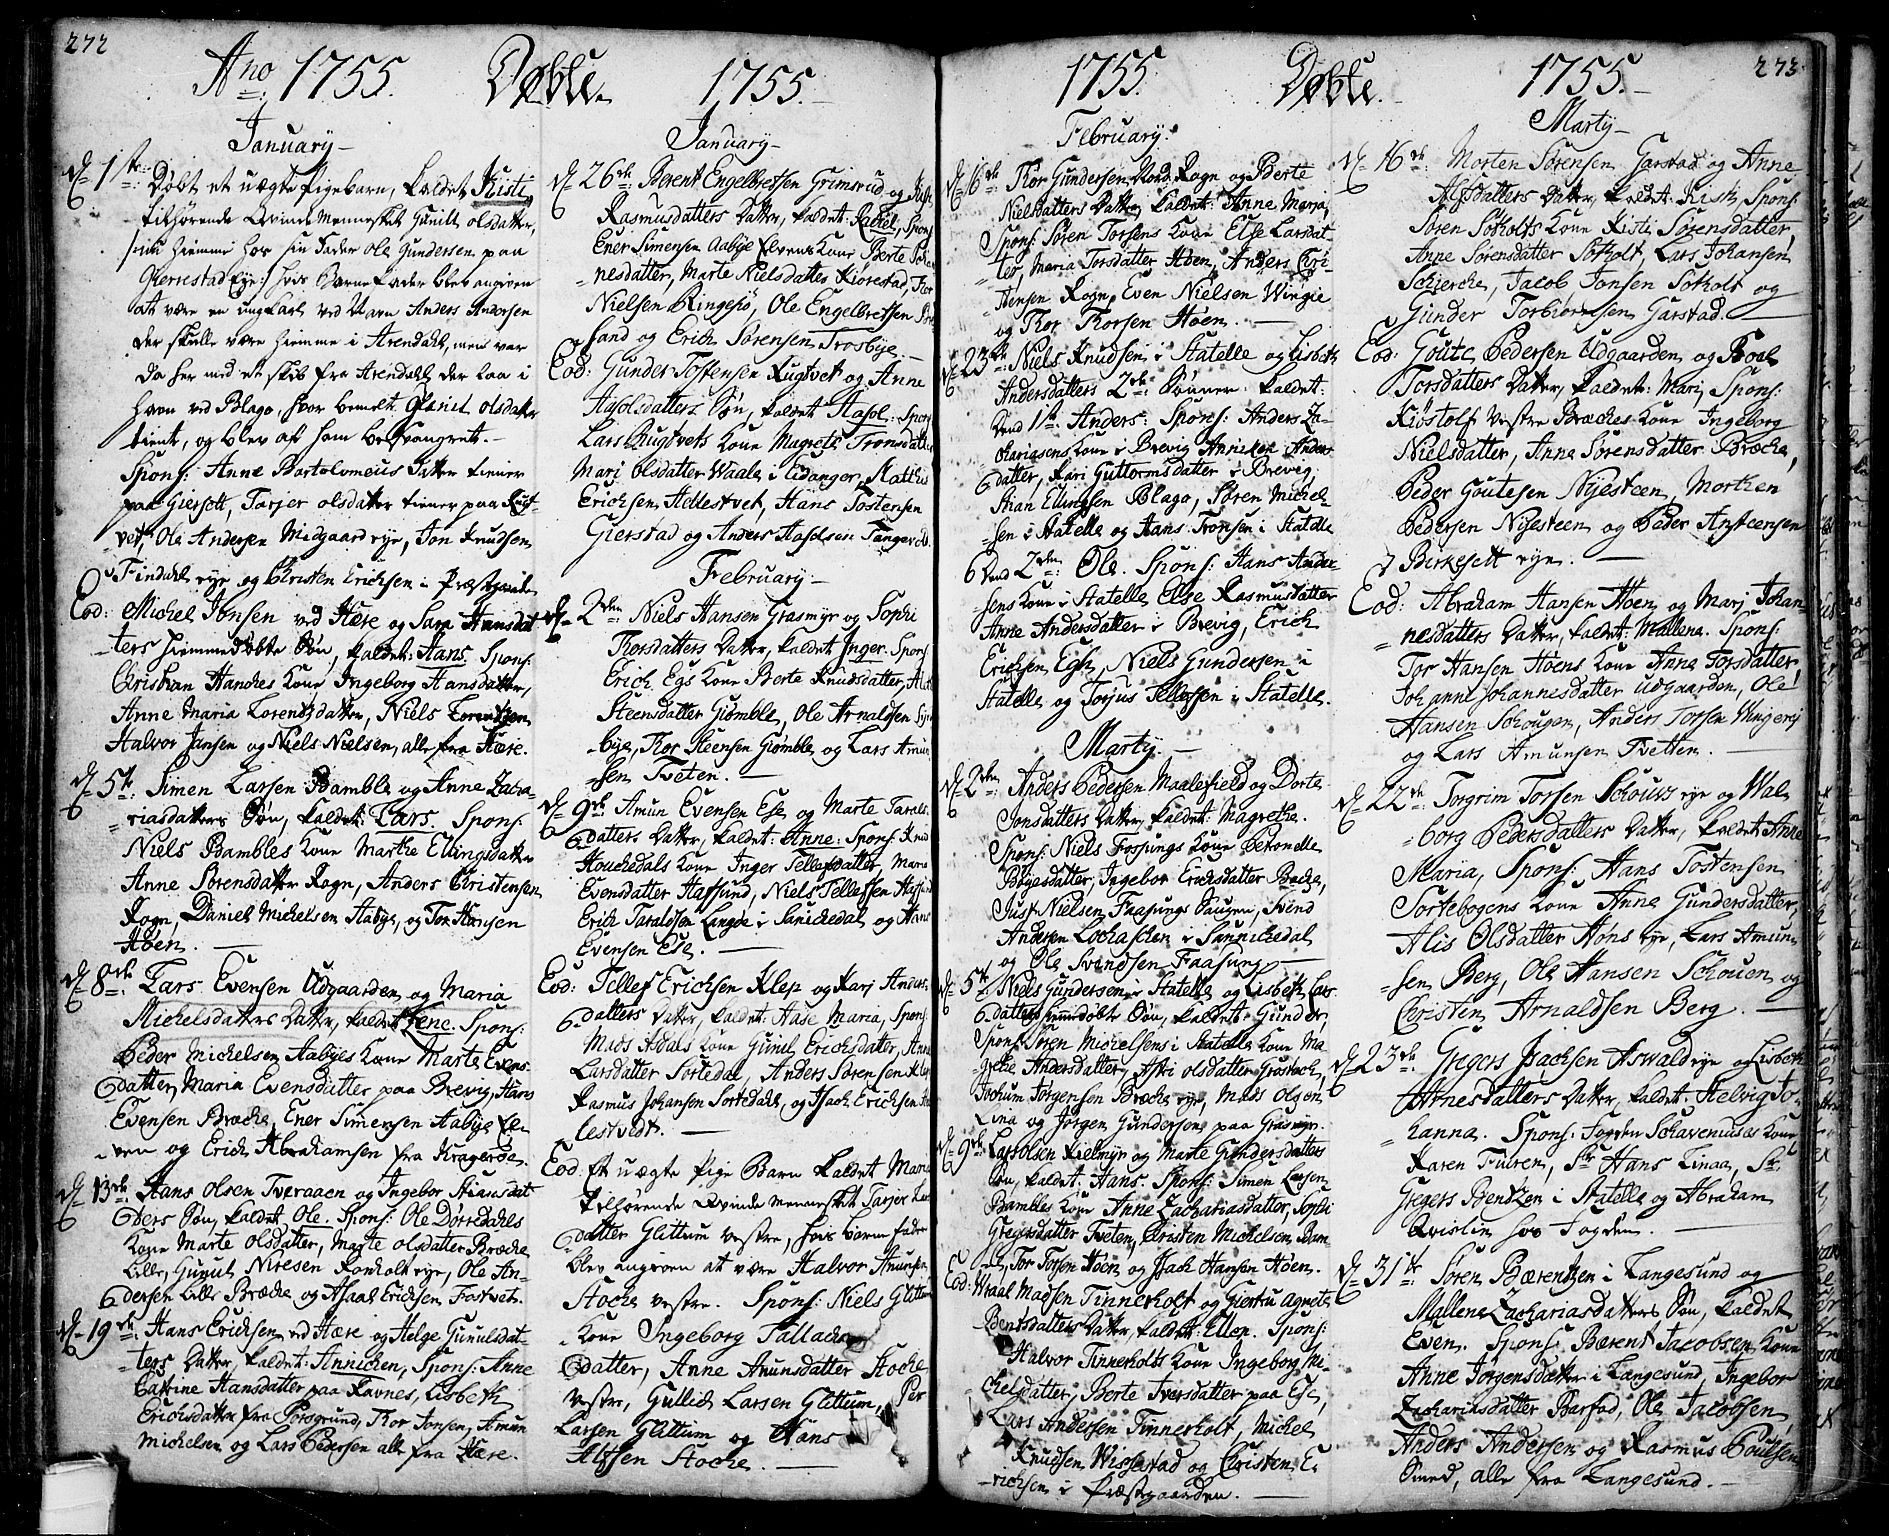 272
Ano 1755. Døbte. 1755.
January
d. 1ste: Døbt et uægte Pigebarn, kaldet Kisti
tilhørende Qvinde Mennesket Gunild olsdatter,
hiemme hos sin Fader Ole Gundersen paa
Eye: hvis Barne Fader blev angiven
at være en ung Karl ved Navn Anders Andersen
der skulle være hiemme i Arendahl, men var
da her med et skib fra Arendahl der laa i
havn ved Blago, hvor bemelt. Gunil olsdatter
tiente, og blev af ham besvangret.
Spons: Anne Bartolomeus Datter tiener
paa Giersett, Torjer olsdatter tiener paa Rug-
vet, Ole Andersen Midgaard eye, Jon Knudsen
Findahl eye og Christen Erichsen i Præstgaarden
Eod: Michel Jensen ved Hære og Sara Hansdat
ters hiemmedøbte Søn, kaldet: Hans. Spons:
Christian Hanches Kone Ingeborg Hansdatter,
Anne Maria Lorentzdatter, Niels Lorentzen
Halvor Jansen og Niels Nielsen, alle fra Hære.
d. 5te: Simen Larsen Bamble og Anne Zacha-
riasdatters Søn, kaldet: Lars. Spons:
Niels Bambles Kone Marthe Ellingsdatter
Anne Sørensdatter Rogn, Anders Christensen
Rogn, Daniel Michelsen Aabye, og Tor Hansen
Høen.
d. 8de: Lars Evensen Udgaarden og Maria
Michelsdatters Datter, kaldet Lene. Spons:
Peder Michelsen Aabyes Kone Marte Evens-
datter, Maria Evensdatter paa Brevig, Hans
Evensen Bræche, Ener Simensen Aabye El-
ven og Erich Abrahamsen fra Kragerøe.
d. 13de: Hans Olsen Tveraaen og Ingebor
ders Søn, kaldet Ole. Spons: Ole Dørredahls
Kone Marte Olsdatter, Marte olsdatter Bræche
Lille, Gunul Niresen Ronholt eye, Ole An-
dersen Lille Bræche og Asaal Ericksen Fostvet.
d. 19de: Hans Erichsen ved Hære og Helge Gunulsdat-
ters Datter, kaldet: Annichen, Spons: Anne
Catrine Hansdatter paa Ravnes, Lisbeth
Erichsdatter fra Porsgrund, Thor Jonsen, Amun
Michelsen og Lars Pedersen alle fra Hære.
January
d. 26de: Berent Engelbretsen Grimsrud og
Rasmusdatters Datter, kaldet: Rachel, Spons
Ener Simensen Aabye Elvens Kone Berte
nesdatter, Marte Nielsdatter Kiørestad, Tor
Nielsen Ringsjø, Ole Engelbretsen
sand og Erich Sørensen Trosbye.
Eod: Gunder Tostensen Rugtvet og Anne
Aasolsdatters Søn, kaldet Aasol: Spons
Lars Rugtvets Kone Magrete Tronsdatter
Mari Olsdatter Waale i Eidanger, Mathis
Erichsen Hellestvet, Hans Tostensen
Gierstad og Anders Hasolsen Tangevald.
February
d. 2den: Niels Hansen Grasmyr og Sophi
Thorsdatters Datter, kaldet Inger. Spons
Erich Egs Kone Berte Knudsdatter,
Steensdatter Giømble, Ole Arnaldsen
bye, Thor Steensen Giømble og Lars Amun
sen Tveten.
d. 9de: Amun Evensen Ese og Marte Tarals
datters Datter, kaldet: Anne: Spons: Knud
Houchedals Kone Inger Tellefsdatter, Maria
Evensdatter Hafsund, Niels Tellefsen Hafsund
Erich Taraldsen Langøe i Sanichedal og Hans
Evensen Ese.
Eod: Tellef Erichsen Klep og Kari Anders
datters Datter, kaldet: Aase Maria, Spons:
Mads Kone Gunil Erichsdatter, Anne
Larsdatter Sortedal, Anders Sørensen Klep
Rasmus Johansen Sortedahl, og Isach Erichsen
lestvedt.
Eod: Et uægte Pige Barn kaldet Maria
tilhørende Qvinde Mennesket Torjer Lars
datter Glittum vestre, hvis barne fader
blev angiven at være Halvor Amunsen,
Stoche vestre. Spons: Niels Glittums
Kone Ingeborg Tallachs
datter, Anne Amunsdatter Stoche
vestre, Gullich Larsen Glittum, Per
Larsen Glittum og Hans
Alfsen Stoche.
273
1755. Døbte. 1755.
February:
d. 16de: Thor Gundersen Nord. Rogn og Berte
Nielsdatters Datter, kaldet: Anne Maria,
Spons: Søren Torsens Kone Else Larsdat-
ter, Maria Torsdatter Høen, Anders Chri-
stensen Rogn, Even Nielsen Wingie
og Thor Thorsen Høen.
d. 23de: Niels Knudsen i Statelle og Lisbeth
Andersdatters 2de Sønner kaldet:
Dend 1ste: Anders: Spons: Anders Za-
chariasens Kone i Brevig Anniken Anders
datter, Kari Guttormsdatter i Brevig,
Stian Ellingsen Blago, Søren Michel-
sen i Statelle og Hans Tronsen i Statelle
Dend 2den: Ole. Spons: Hans Ander
sens Kone i Statelle Else Rasmusdatter
Anne Andersdatter i Brevig, Erich
Erichsen Egh, Niels Gundersen i
Statelle og Torjus Tellefsen i Statelle.
Marty.
d. 2den: Anders Pedersen Maalefield og Dorte
Jonsdatters Datter, kaldet: Magrethe.
Spons: Niels Fossungs Kone Petronelle
Bøyesdatter, Ingebor Erichsdatter Bræche,
Just Nielsen Faasungs Haugen, Svend
Andersen Lochaschen i Sannichedal
og Ole Svendsen Faasung
d. 5te: Niels Gundersen i Statelle og Lisbeth Lars-
datters hiemmedøbte Søn, kaldet: Gunder,
Spons: Søren Michelsens i Statelle Kone Ma
grete Andersdatter, Astri olsdatter Grostoch,
Jochum Jørgensen Bræche eye, Mads Olsen
Lina og Jørgen Gundersen paa Grasmyr.
d. 9de: Lars Olsen Kielmyr og Marte Gundersdatters
Søn, kaldet: Hans. Spons: Simen Larsen
Bambles Kone Anne Zachariasdatter, Sophi
Gregersdatter Tveten, Christen Michelsen Bam-
ble, Tor Torsen Høen og Isach Hansen Høen.
Eod: Waal Madsen Tinnerholt og Giertru Agnete
Bentsdatters Datter, kaldet: Ellen. Spons:
Halvor Tinnerholts Kone Ingeborg Mi-
chelsdatter, Berte Iversdatter paa Ese,
Lars Andersen Tinnerholt, Michel
Knudsen Wissestad og Christen E-
richsen i Præstegaarden.
Marty
d. 16de: Morten Sørensen Garstad og Anne
Alfsdatters Datter, kaldet: Kisti, Spons:
Søren Sotholts Kone Kisti Sørensdatter,
Anne Sørensdatter Sotholt, Lars Johansen
Schierche, Jacob Jonsen Sotholt og
Gunder Torbiørnsen Garstad.
Eod: Goute Pedersen Udgaarden og Boel
Torsdatters Datter, kaldet: Mari, Spons:
Kiøstolf Vestre Bræches Kone Ingeborg
Nielsdatter, Anne Sørensdatter Bræche,
Peder Goutesen Nyesteen, Morthen
Pedersen Nyesteen og Peder Anstensen
Birkesett eye.
Eod: Abraham Hansen Høen og Mari Johan
nesdatters Datter, kaldet: Mallena. Spons:
Tor Hansen Høens Kone Anne Torsdatter
Johanne Johannesdatter Udgaarden, Ole
Hansen Schougen, Anders Torsen Wingerej
og Lars Amunsen Tvetten.
d. 22de: Torgrim Torsen Schouss eye og Wal
borg Pedersdatters Datter, kaldet Anne
Maria, Spons: Hans Tostensen
Tortebogens Kone Anne Gundersdatter,
Alis Olsdatter Høns eye, Lars Amun
sen Berg, Ole Hansen Schouen og
Christen Arnaldsen Berg.
d. 23de: Gregers Isachsen Aswald eye og Lisbeth
Arnesdatters Datter, kaldet: Helvig Jo-
hanna. Spons: Fogden Schavenius's Kone
Karen Fuiren, Sr. Hans Linaa, Sr.
Gregers Brentzen i Statelle og Abraham
Qvislin hos Fogden.
d. 31te: Søren Bærentzen i Langesund og
Mallene Zachariasdatters Søn, kaldet
Even. Spons: Bærent Jacobsens Kone
Anne Jørgensdatter i Langesund, Ingebor
Zachariasdatter Barfod, Ole Jacobsen
Anders Andersen og Rasmus Poulsen
Smed, alle fra Langesund.